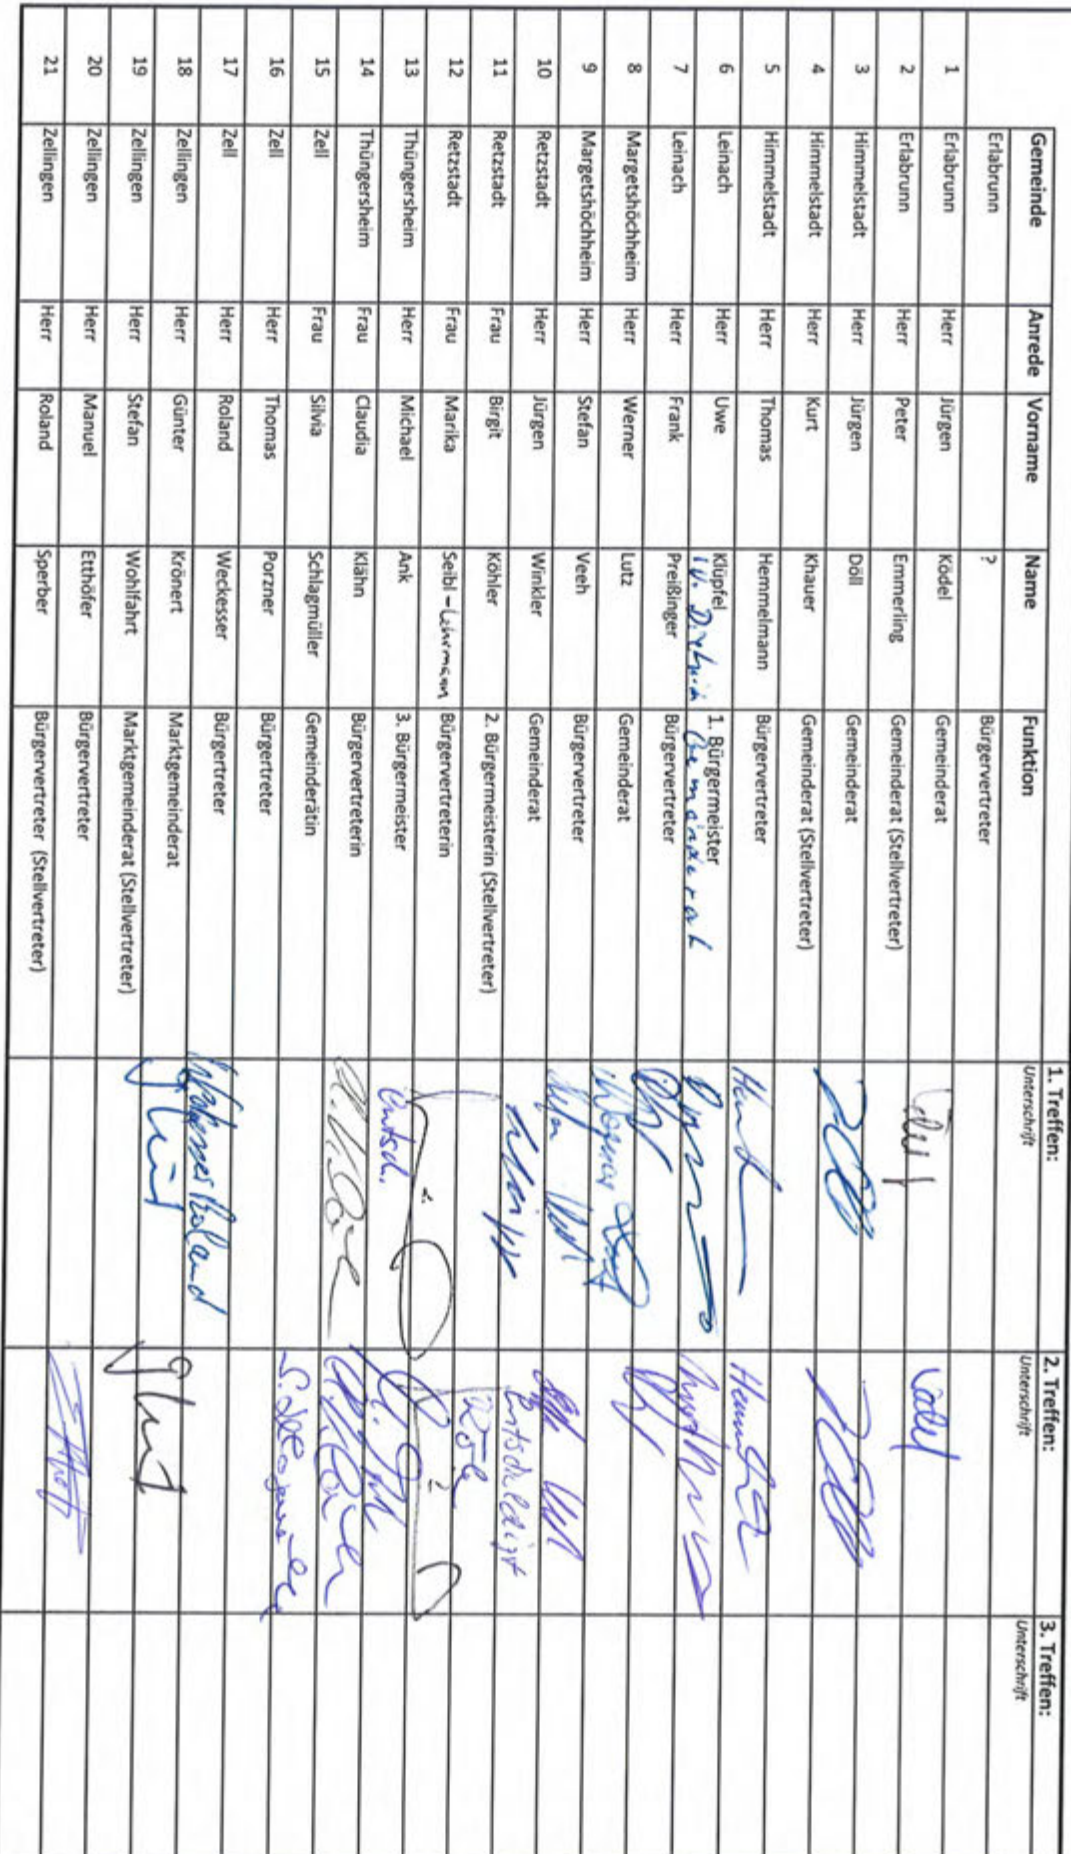 Gemeinde Anrede Vorname Name Funktion 1. Treffen: 2. Treffen: 3. Treffen:
Unterschrift Unterschrift Unterschrift
Erlabrunn ? Bürgervertreter
1 Erlabrunn Herr Jürgen Ködel Gemeinderat
2 Erlabrunn Herr Peter Emmerling Gemeinderat (Stellvertreter)
3 Himmelstadt Herr Jürgen Döll Gemeinderat
4 Himmelstadt Herr Kurt Khauer Gemeinderat (Stellvertreter)
5 Himmelstadt Herr Thomas Hemmelmann Bürgervertreter
6 Leinach Herr Uwe Klüpfel 1. Bürgermeister
Gemeinderat
7 Leinach Herr Frank Preißinger Bürgervertreter
8 Margetshöchheim Herr Werner Lutz Gemeinderat
9 Margetshöchheim Herr Stefan Veeh Bürgervertreter
10 Retzstadt Herr Jürgen Winkler Gemeinderat Entschuldigt
11 Retzstadt Frau Birgit Köhler 2. Bürgermeisterin (Stellvertreter)
12 Retzstadt Frau Marika Seibl - Lehrmann Bürgervertreterin
13 Thüngersheim Herr Michael Ank 3. Bürgermeister Entsch.
14 Thüngersheim Frau Claudia Klähn Bürgervertreterin
15 Zell Frau Silvia Schlagmüller Gemeinderätin
16 Zell Herr Thomas Porzner Bürgertreter
17 Zell Herr Roland Weckesser Bürgertreter Weckesser Roland
18 Zellingen Herr Günter Krönert Marktgemeinderat
19 Zellingen Herr Stefan Wohlfahrt Marktgemeinderat (Stellvertreter)
20 Zellingen Herr Manuel Etthöfer Bürgervertreter
21 Zellingen Herr Roland Sperber Bürgervertreter (Stellvertreter)